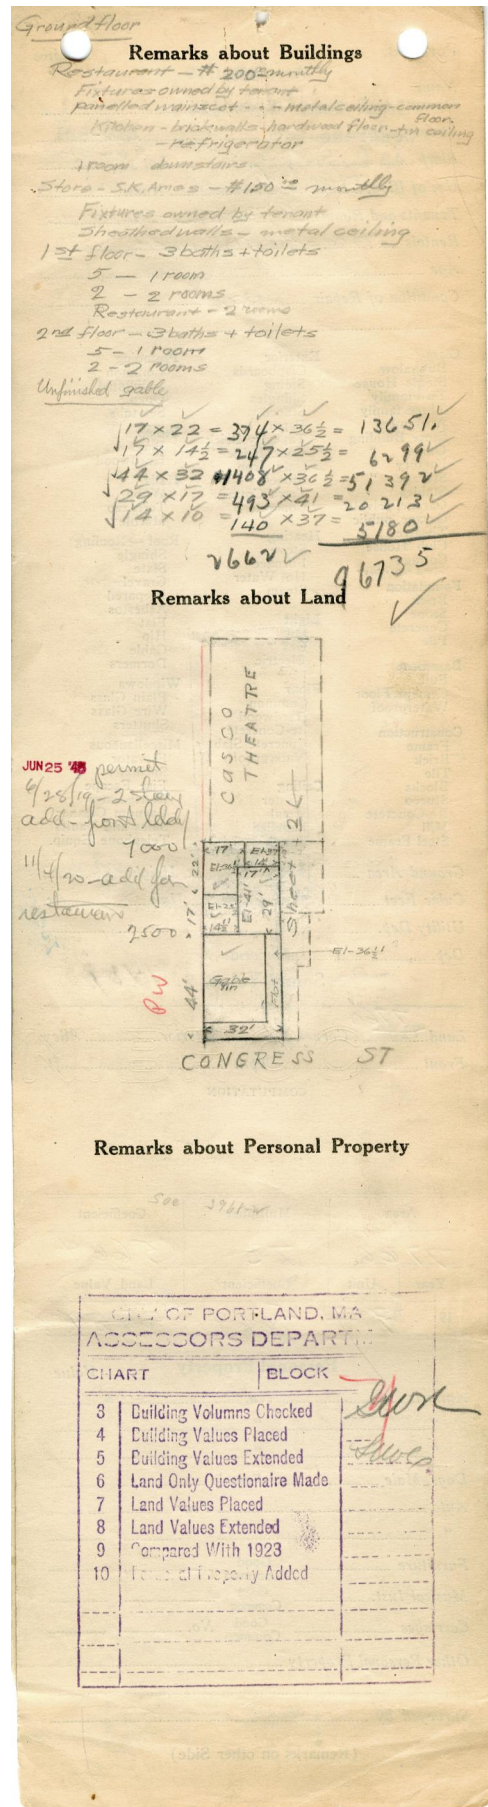 Ground floor
Remarks about Buildings
Restaurant - #200 - monthly
Fixtures owned by tenant
panelled wainscot - - - metal ceiling - common
floor.
Kitchen - brick walls - hardwood floor - tin ceiling
- refrigerator
1 room downstairs
Store - S.K. Ames - #150 00 monthly
Fixtures owned by tenant
Sheathed walls - metal ceiling
1st floor - 3 baths + toilets
5 - 1 room
2 - 2 rooms
Restaurant - 2 rooms
2nd floor - 3 baths + toilets
5 - 1 room
2 - 2 rooms
Unfinished gable
17 x 22 = 374 x 36½ = 13651.
17 x 14½ = 247 x 25½ = 6299
44 x 32 = 1408 x 36½ = 51392
29 x 17 = 493 x 41 = 20213
14 x 10 = 140 x 37 = 5180
2662 96735
Remarks about Land
CASCO
THEATRE
JUN 25 permit
6/28/19 - 2 story
add - front bldg
7000
11/4/20 - add for
restaurant
2500
22'
17'
44'
17' El-37
El-36½ 14'
17'
El-41' 29'
14½
Sheet + 24
El-36½'
Gable
Tin
Flat
32'
PW
CONGRESS ST
Remarks about Personal Property
500
CITY OF PORTLAND, MA
ASSESSORS DEPART
CHART BLOCK
3 Building Volumns Checked
4 Building Values Placed
5 Building Values Extended
6 Land Only Questionaire Made
7 Land Values Placed
8 Land Values Extended
9 Compared With 1923
10 Personal Property Added
(Remarks on other Side)